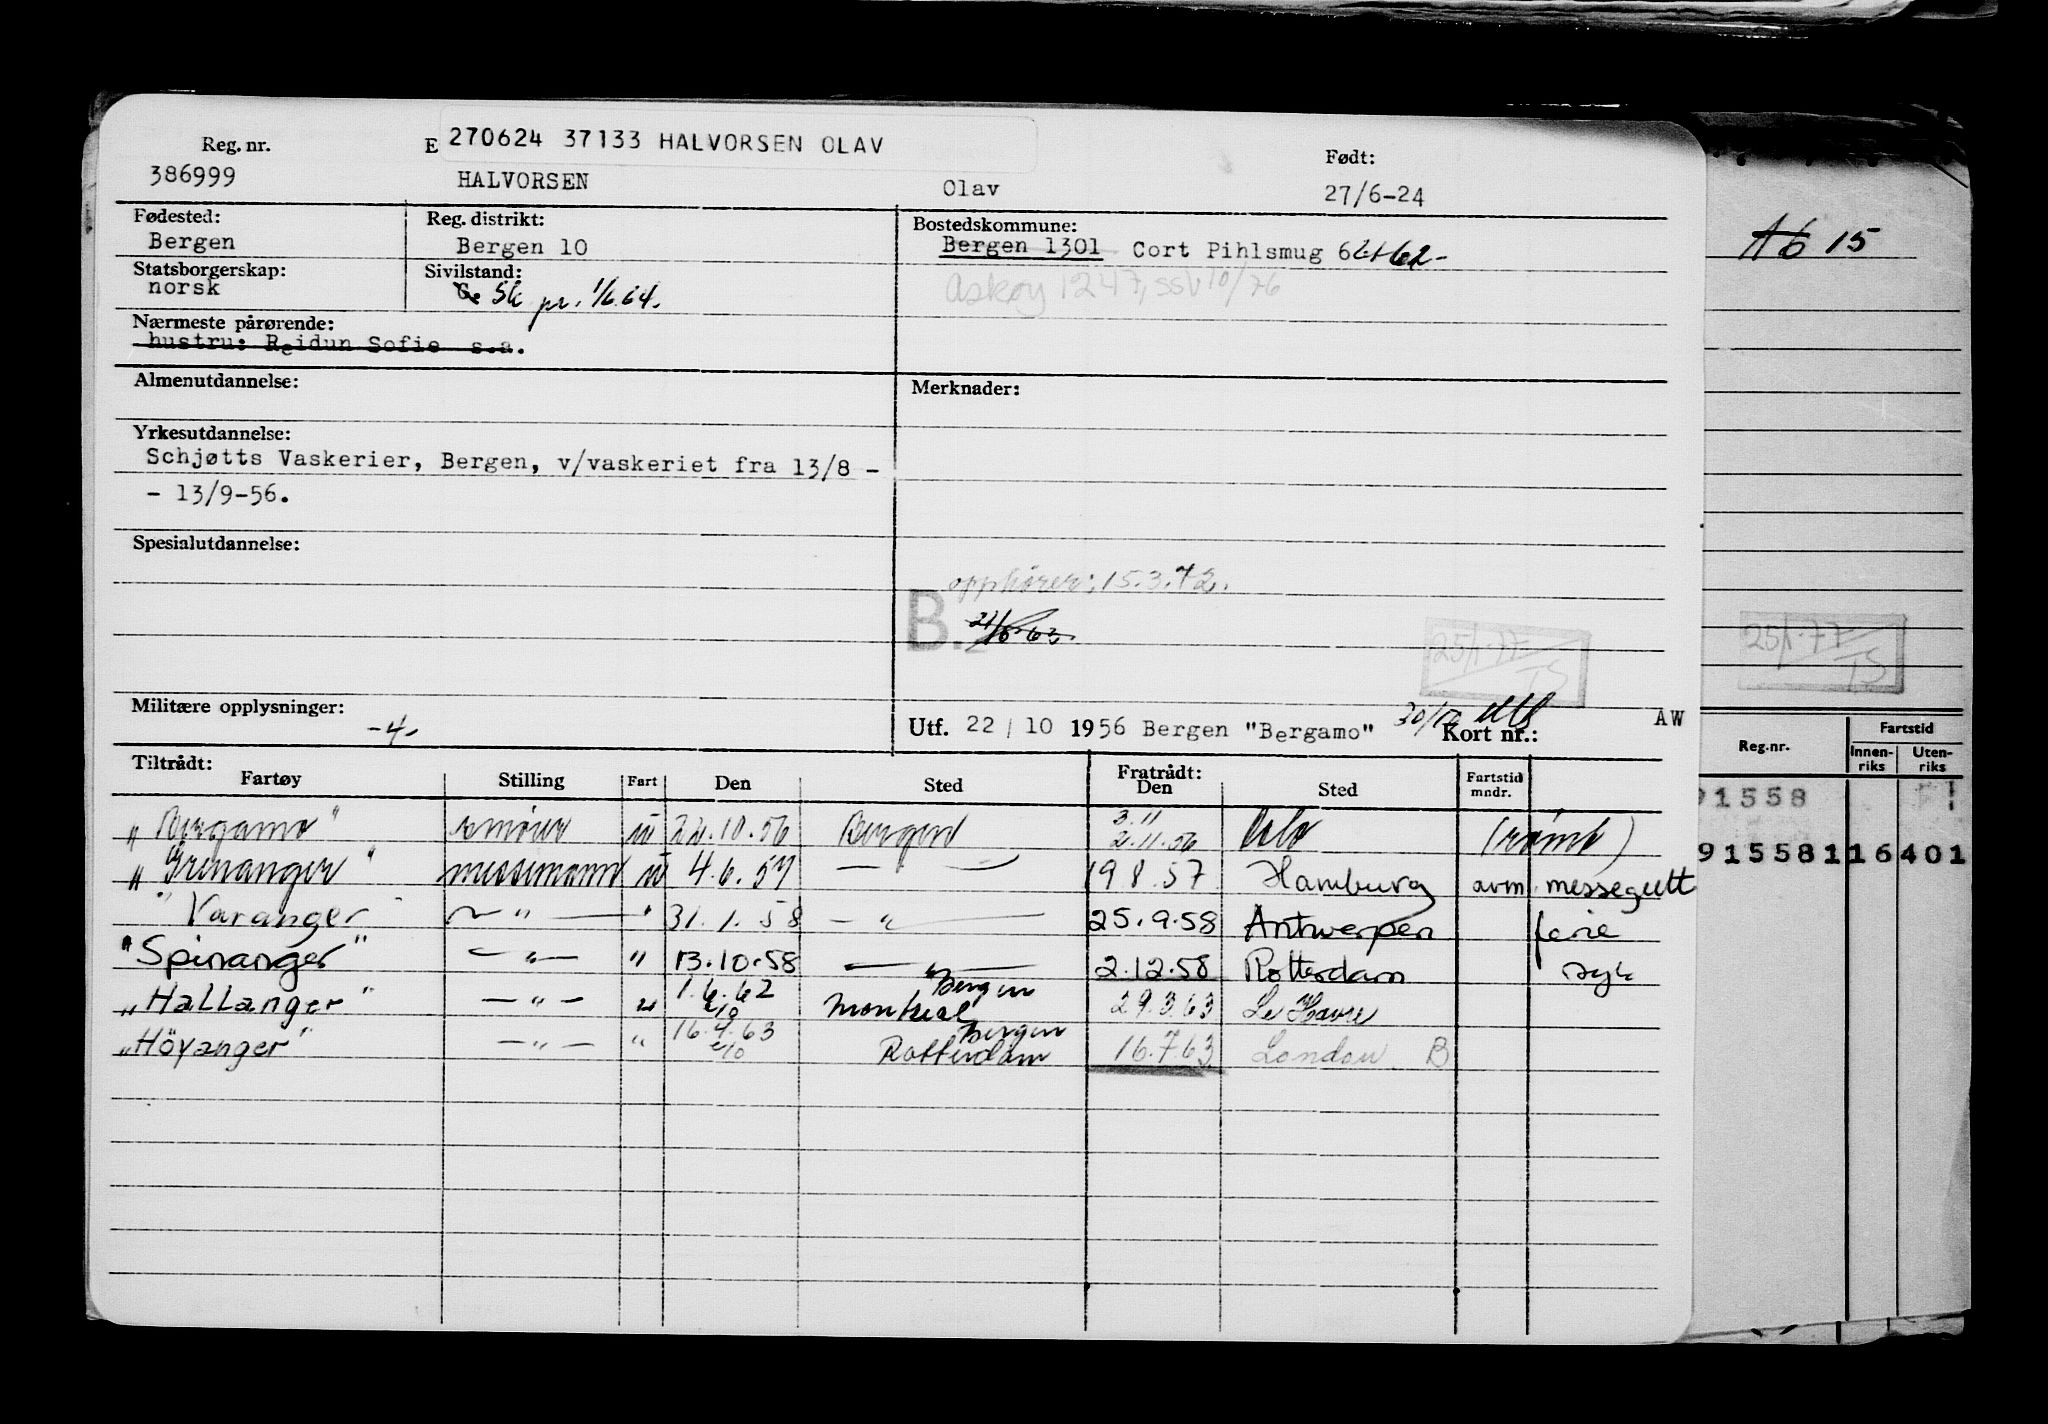 Reg. nr.
386999
E 270624 37133 HALVORSEN OLAV
HALVORSEN Olav
Født:
27/6-24
Fødested:
Bergen
Reg. distrikt:
Bergen 10
Bostedskommune:
Bergen 1301 Cort Pihlsmug 62-
Askøy 1247, SSV 10/76
Statsborgerskap:
norsk
Sivilstand:
G. Sk pr. 1/6.64.
Nærmeste pårørende:
hustru: Reidun Sofie s.a.
Almenutdannelse:
Merknader:
Yrkesutdannelse:
Schjøtts Vaskerier, Bergen, v/vaskeriet fra 13/8 -
- 13/9-56.
Spesialutdannelse:
opphører: 15.3.72.
B.
21/6-63.
25/1-77/TS
Militære opplysninger:
-4-
Utf. 22 / 10 1956 Bergen "Bergamo" 30/10
Kort nr.:
AW
Tiltrådt: Fratrådt:
Fartøy Stilling Fart Den Sted Den Sted Fartstid mndr.
"Bergamo" smører u 22.10.56 Bergen 3.11 2.11.56 Oslo (rømt)
"Grenanger" messemann u 4.6.57 — 19 8.57 Hamburg avm. messegutt
"Varanger" — " — " 31.1.58 — " — 25.9.58 Antwerpen ferie
"Spinanger" — " — " 13.10.58 — " — 2.12.58 Rotterdam syk
"Hallanger" — " — " 1.6.62 e/o Bergen Montreal 29.3 63 Le Havre
"Höyanger" — " — " 16.4.63 e/o Bergen Rotterdam 16.7.63 London B
A6 15
25/1-77/TS
Reg.nr.
Fartstid
Innen-riks
Uten-riks
91558
915581 16 401